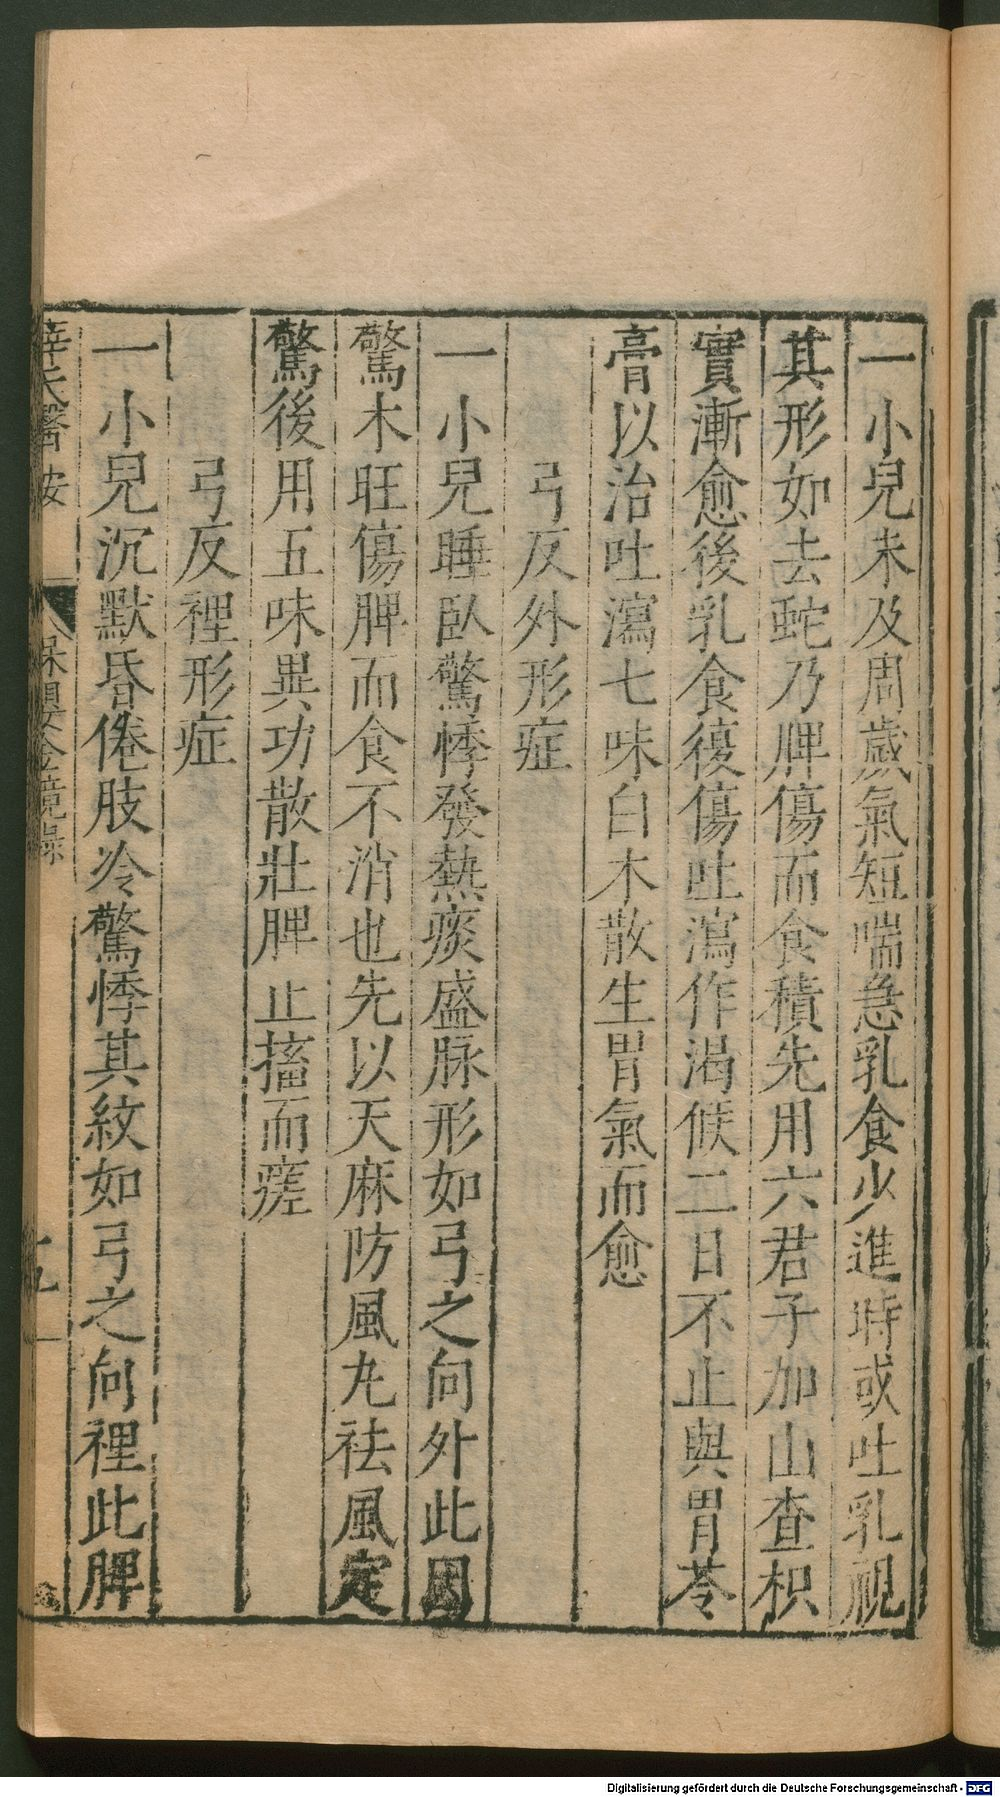 一小兒未及周歲氣短喘急乳食少進時或吐乳視
其形如去蛇乃脾傷而食積先用六君子加山查枳
實漸愈後乳食復傷吐瀉作渴候二日不止與胃苓
膏以治吐瀉七味白术散生胃氣而愈
弓反外形症
一小兒睡臥驚悸發熱痰盛脉形如弓之向外此因
驚木旺傷脾而食不消也先以天麻防風丸祛風定
驚後用五味異功散壯脾止搐而瘥
弓反裡形症
一小兒沉默昏倦肢冷驚悸其紋如弓之向裡此脾
薛氏醫按 保嬰金鏡錄
Digitalisierung gefördert durch die Deutsche Forschungsgemeinschaft - DFG